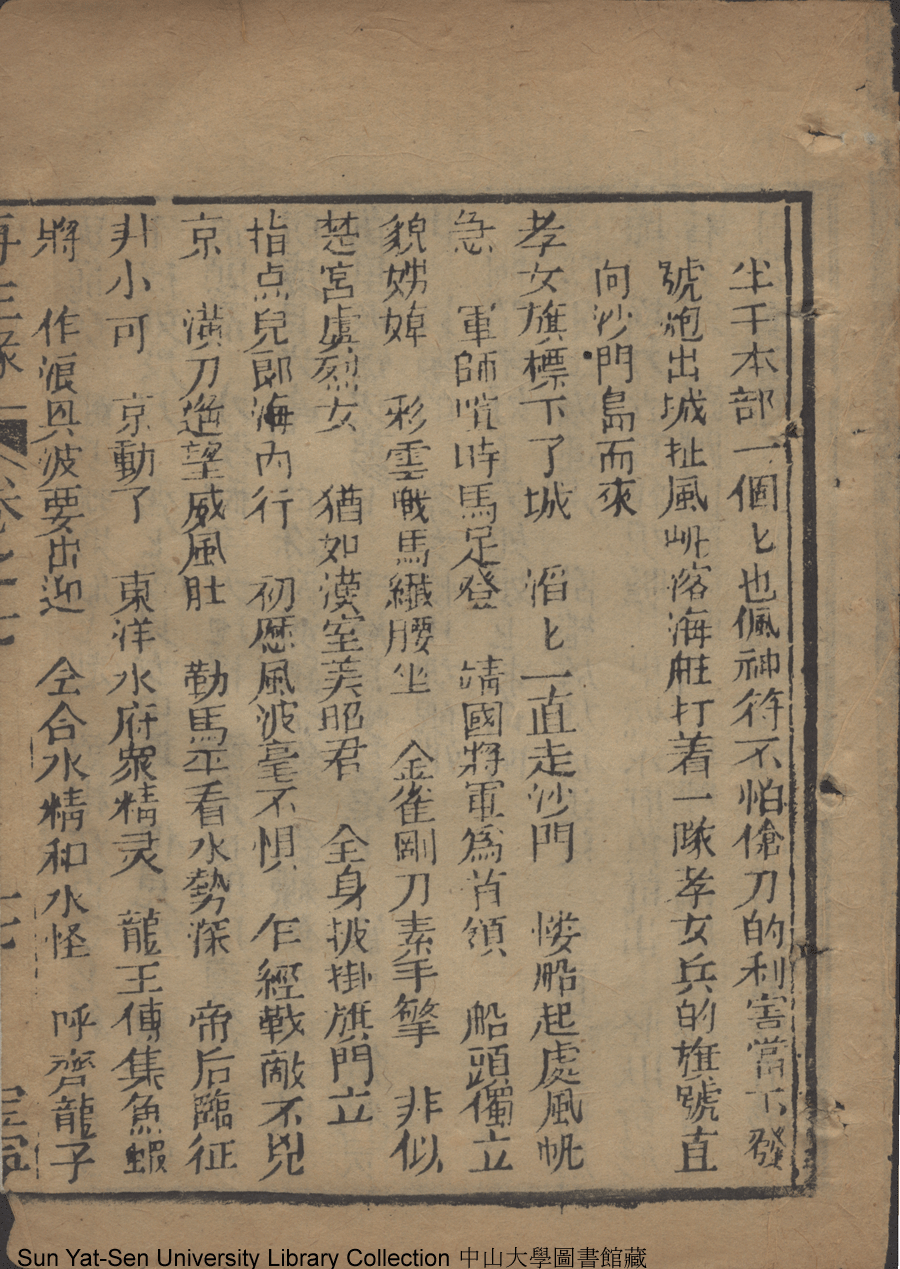 半千本部一個匕也佩神符不怕傖刀的利害當下發
號炮出城扯風帆落海䑓打着一隊孝女兵的旗號直
向沙門島而來
孝女旗標下了城　滔匕一直走沙門　㥪船起處風帆
急　軍師喧時馬足登　靖國將軍為首領　船頭獨立
貌娉婷　彩雲戰馬纖腰坐　金雀剛刀素手擎　非似
楚宮虞烈女　猶如漢室美昭君　全身披掛旗門立
指点兒郎海內行　初歷風波毫不惧　乍經戰敵不兇
京　潢刀遙望威風壯　勒馬平看水勢深　帝后臨征
非小可　京動了　東洋水府衆精灵　龍王傳集魚蝦
將　作浪興波要出迎　仝合水精和水怪　呼齊龍子
再生緣　卷之十七
Sun Yat-Sen University Library Collection 中山大學圖書館藏